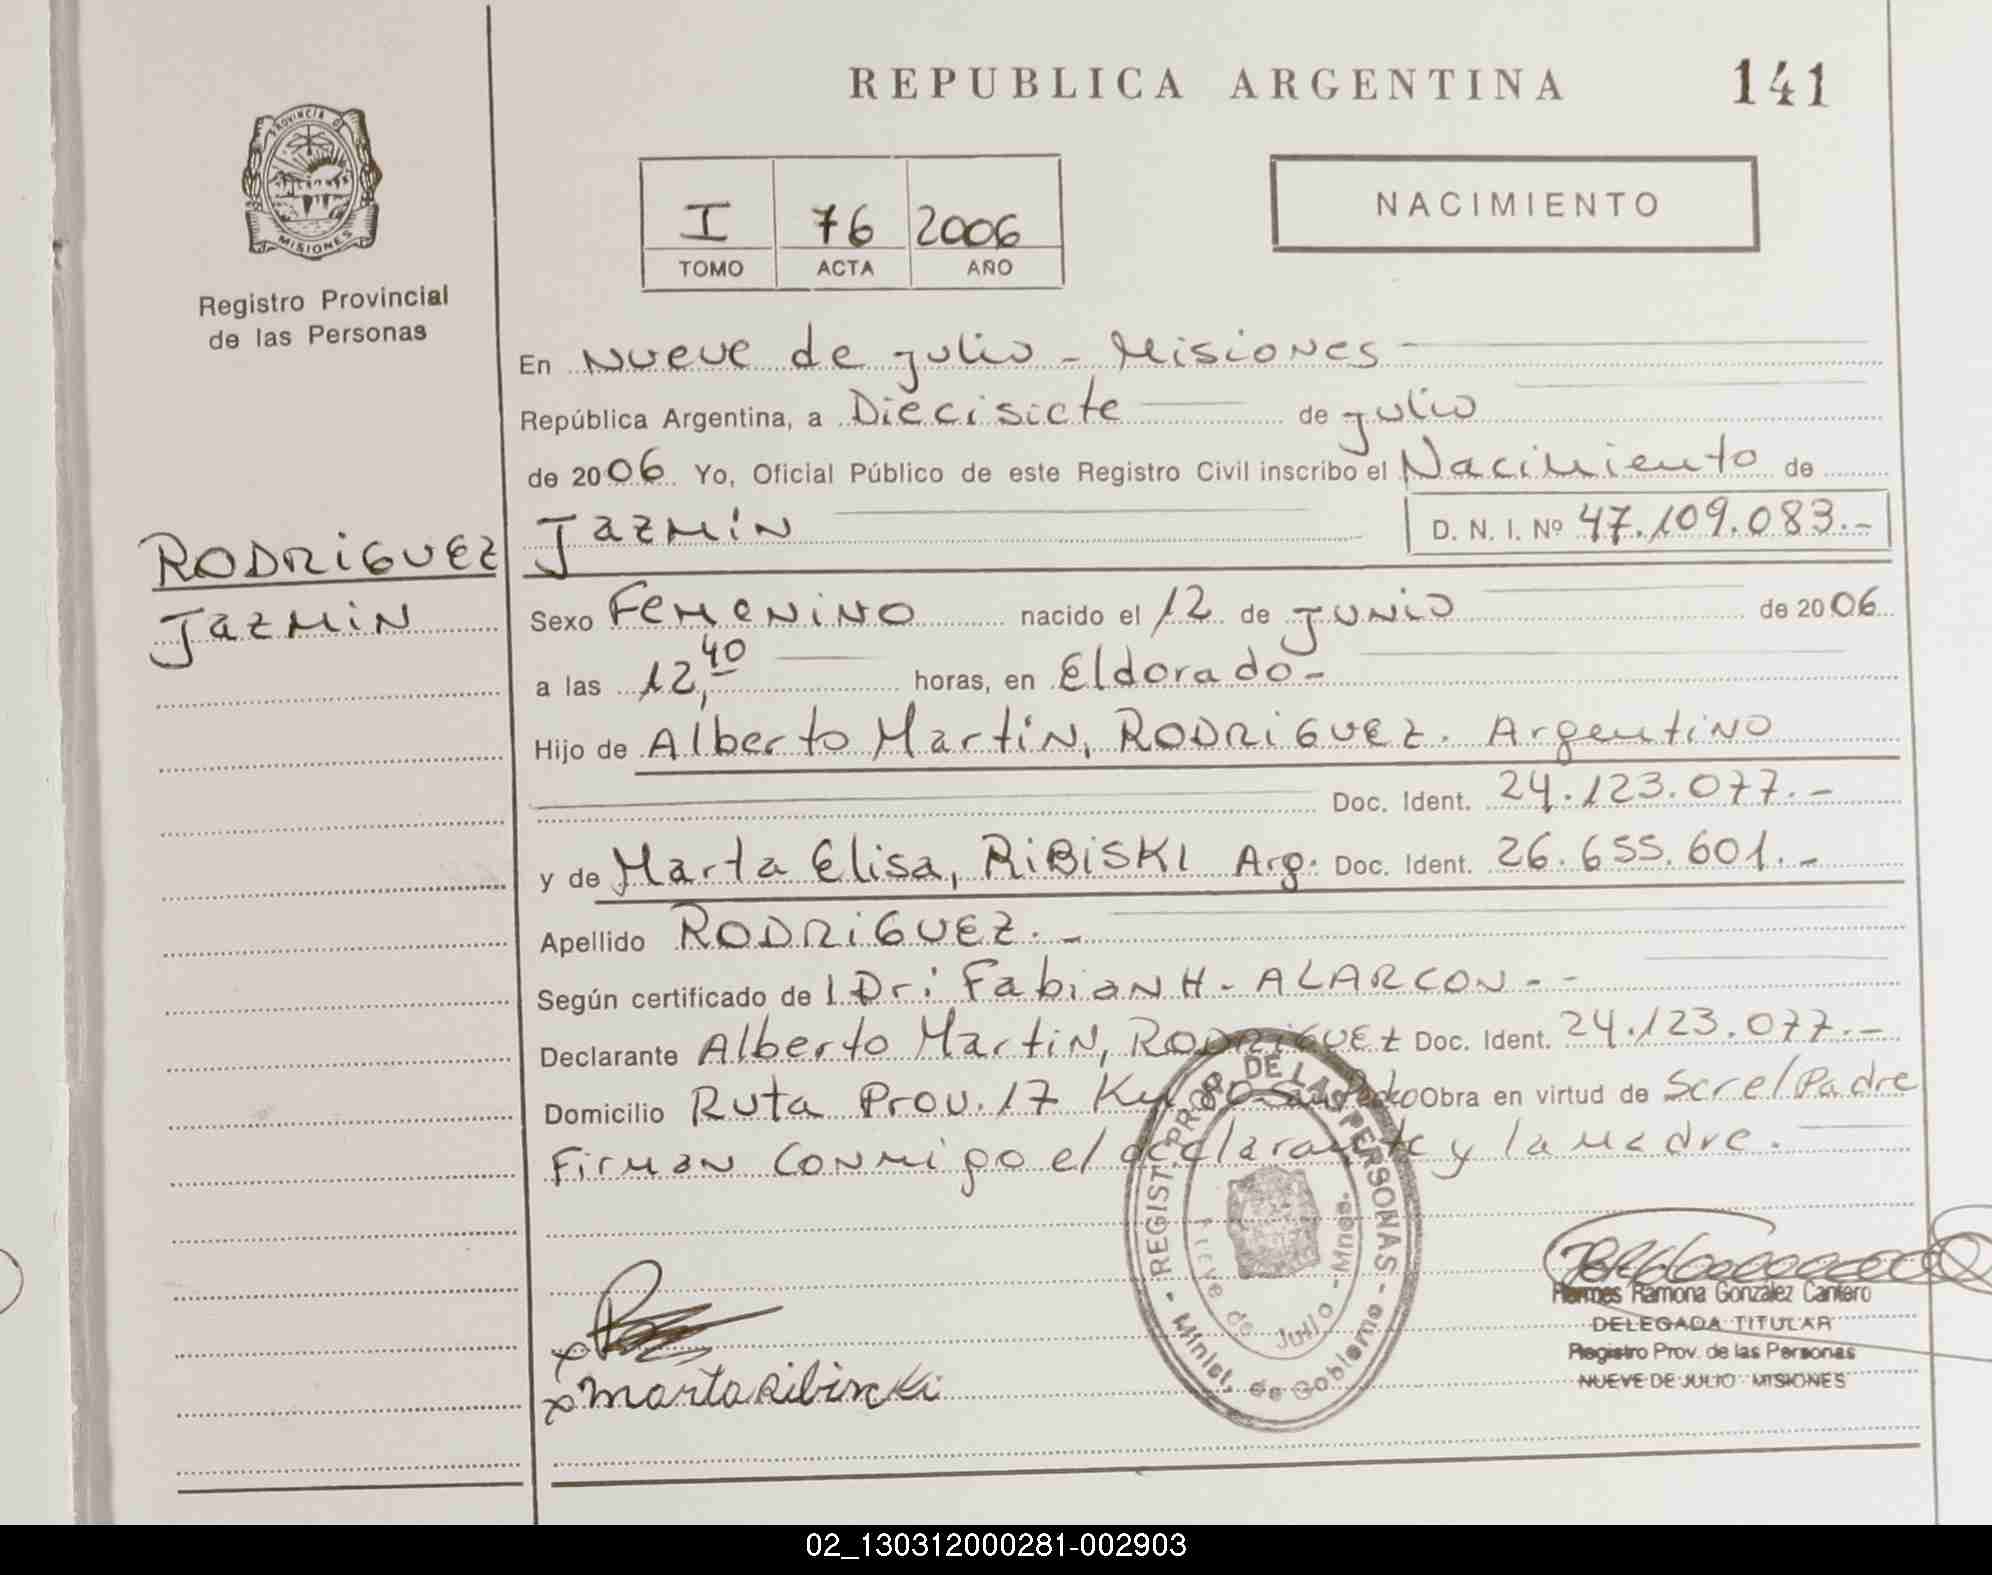 REPUBLICA ARGENTINA
141
PROVINCIA DE
MISIONES
Registro Provincial
de las Personas
I 76 2006
TOMO ACTA AÑO
NACIMIENTO
En Nueve de julio - Misiones
República Argentina, a Diecisiete de julio
de 2006 Yo, Oficial Público de este Registro Civil inscribo el Nacimiento de
RODRIGUEZ
JAZMIN
JAZMíN D. N. I. Nº 47.109.083.-
Sexo Femenino nacido el 12 de junio de 2006
a las 12,40 horas, en Eldorado-
Hijo de Alberto Martín, RODRIGUEZ. Argentino
Doc. Ident. 24.123.077.-
y de Marta Elisa, RIBISKI Arg. Doc. Ident. 26.655.601.-
Apellido RODRIGUEZ.-
Según certificado de Dr: Fabian H. ALARCON--
Declarante Alberto Martin, RODRIGUEZ Doc. Ident. 24.123.077.-
Domicilio Ruta Prov. 17 Obra en virtud de Ser el Padre
Firman conmigo el declarante y la madre.
REGIST. PROV. DE LAS PERSONAS
Nueve de Julio - Mnes.
- Minist. de Gobierno -
x
x Marta Ribincki
Hermes Ramona González Cantero
DELEGADA TITULAR
Registro Prov. de las Personas
NUEVE DE JULIO MISIONES
02_130312000281-002903